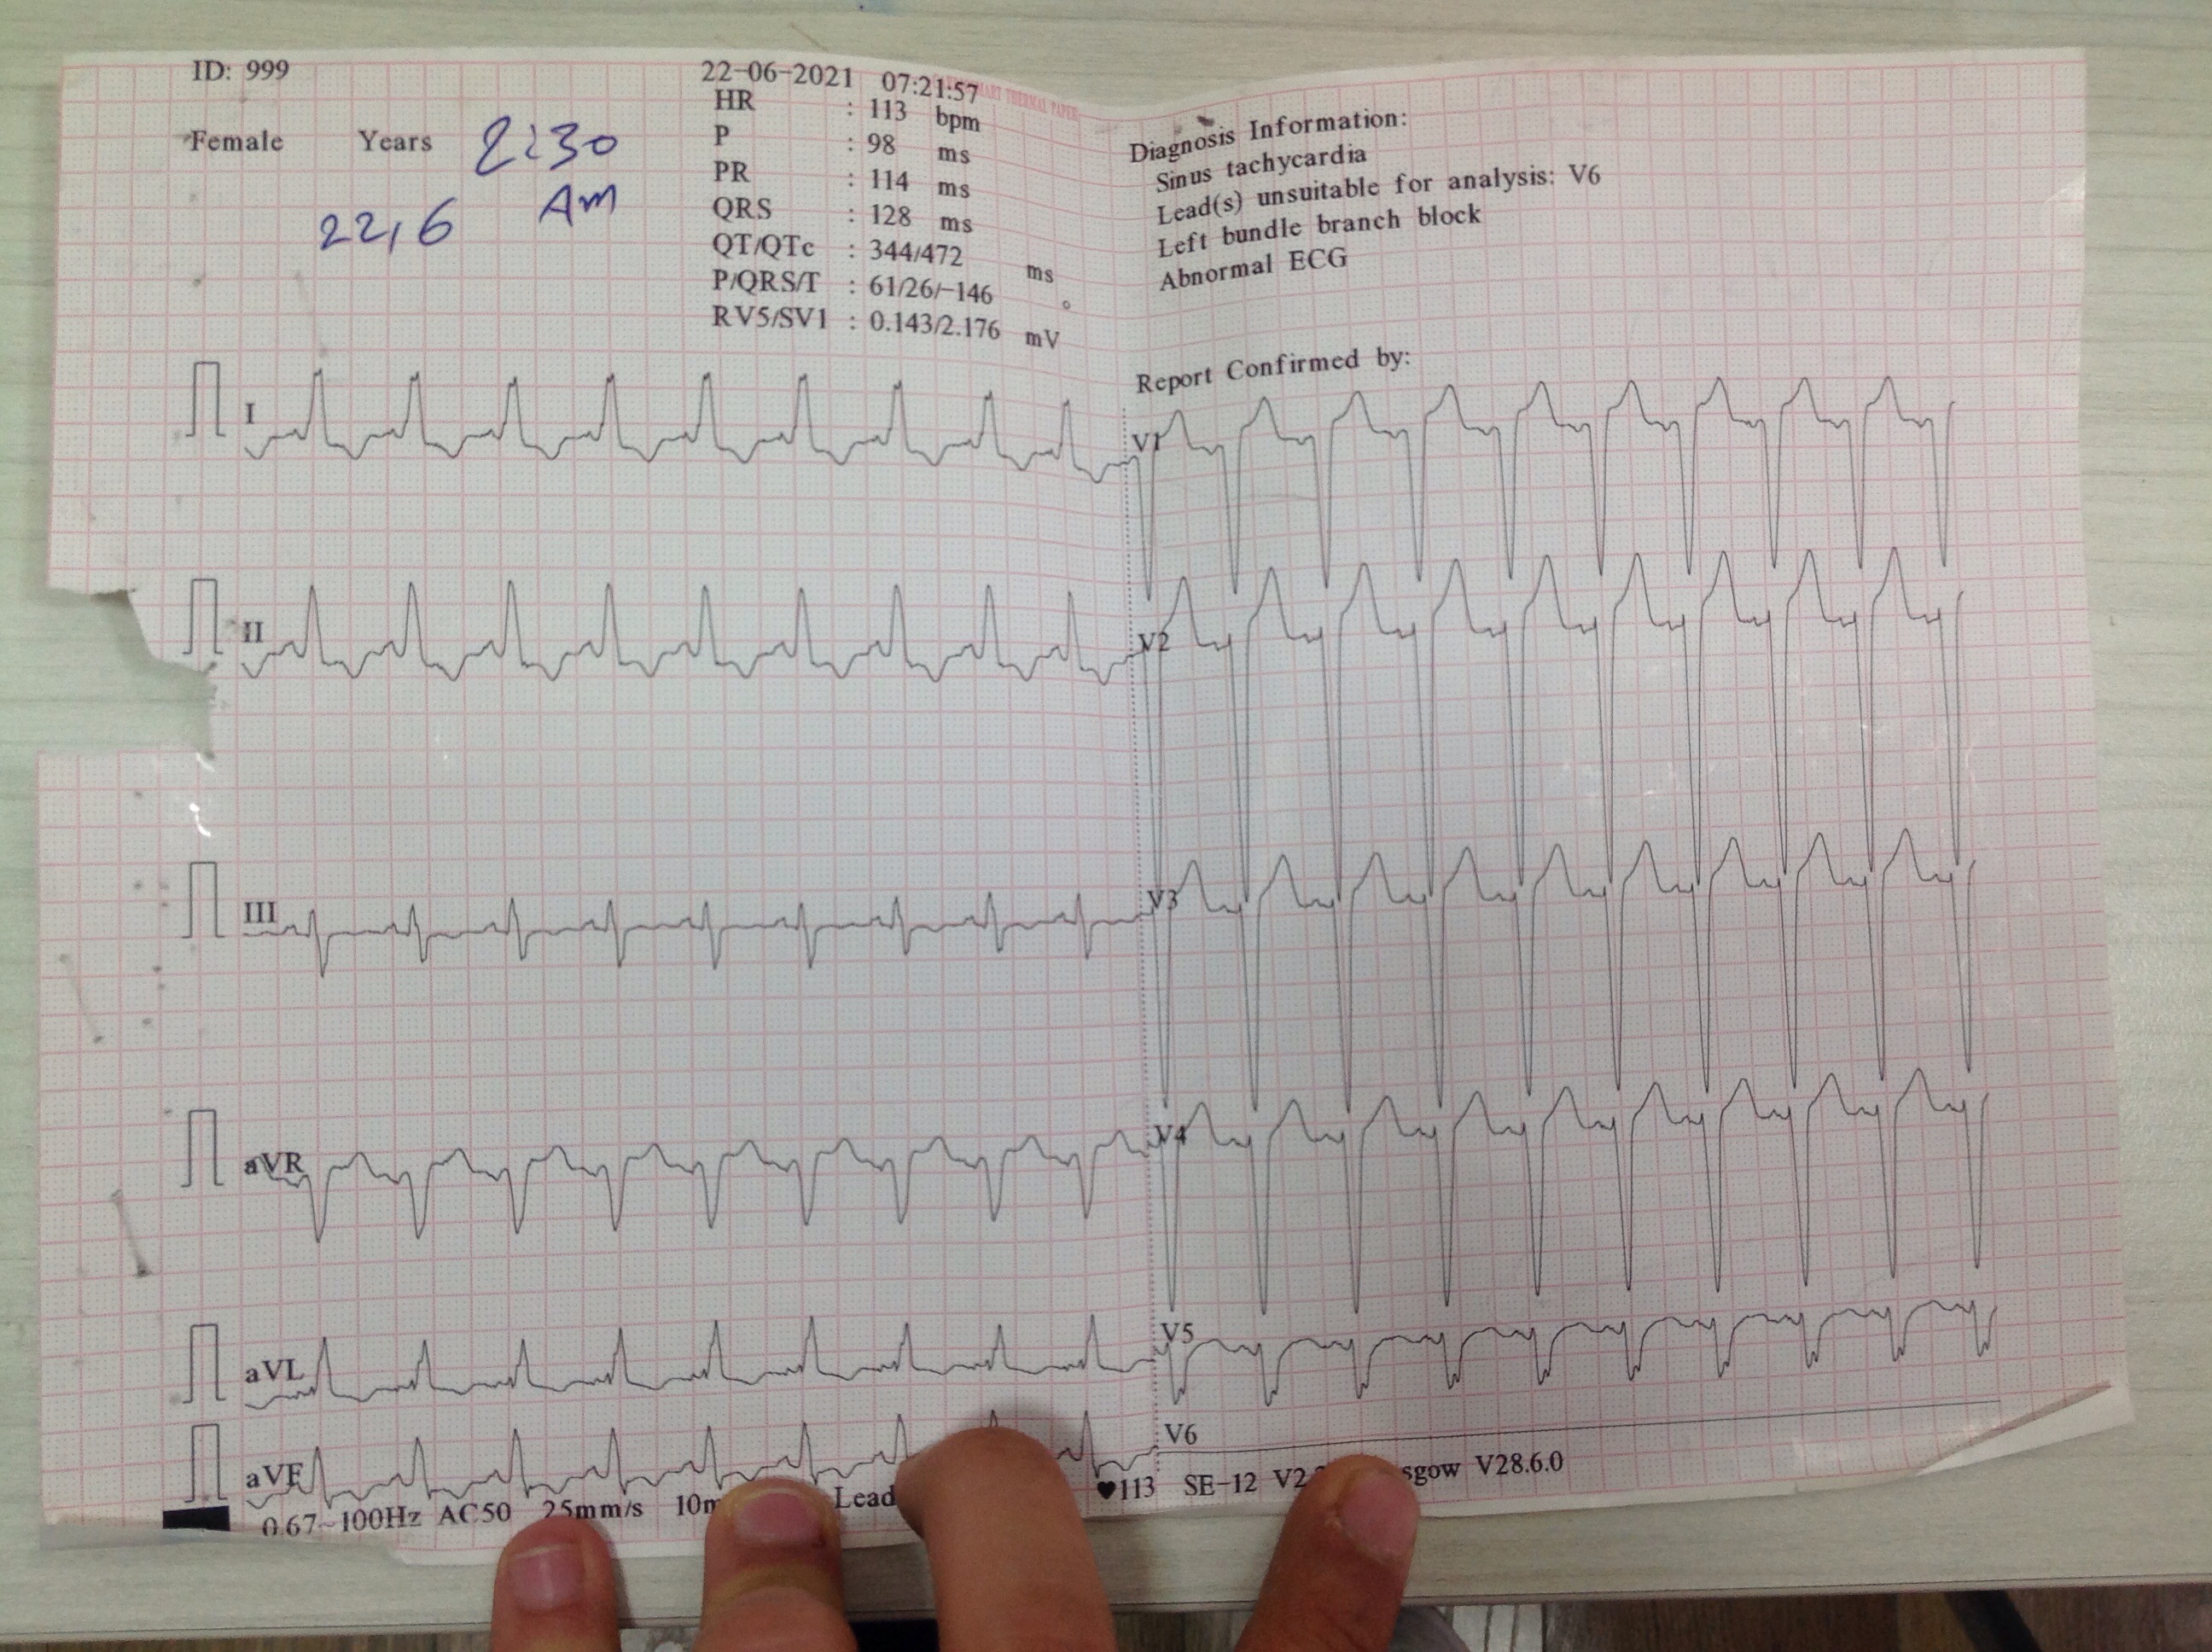 ID: 999
Female Years 2:30
22,6 Am
22-06-2021 07:21:57
HR : 113 bpm
P : 98 ms
PR : 114 ms
QRS : 128 ms
QT/QTc : 344/472 ms
P/QRS/T : 61/26/-146 °
RV5/SV1 : 0.143/2.176 mV
THERMAL PAPER
Diagnosis Information:
Sinus tachycardia
Lead(s) unsuitable for analysis: V6
Left bundle branch block
Abnormal ECG
Report Confirmed by:
I
II
III
aVR
aVL
aVF
V1
V2
V3
V4
V5
V6
0.67~100Hz AC50 25mm/s Lead ♥113 SE-12 V28.6.0